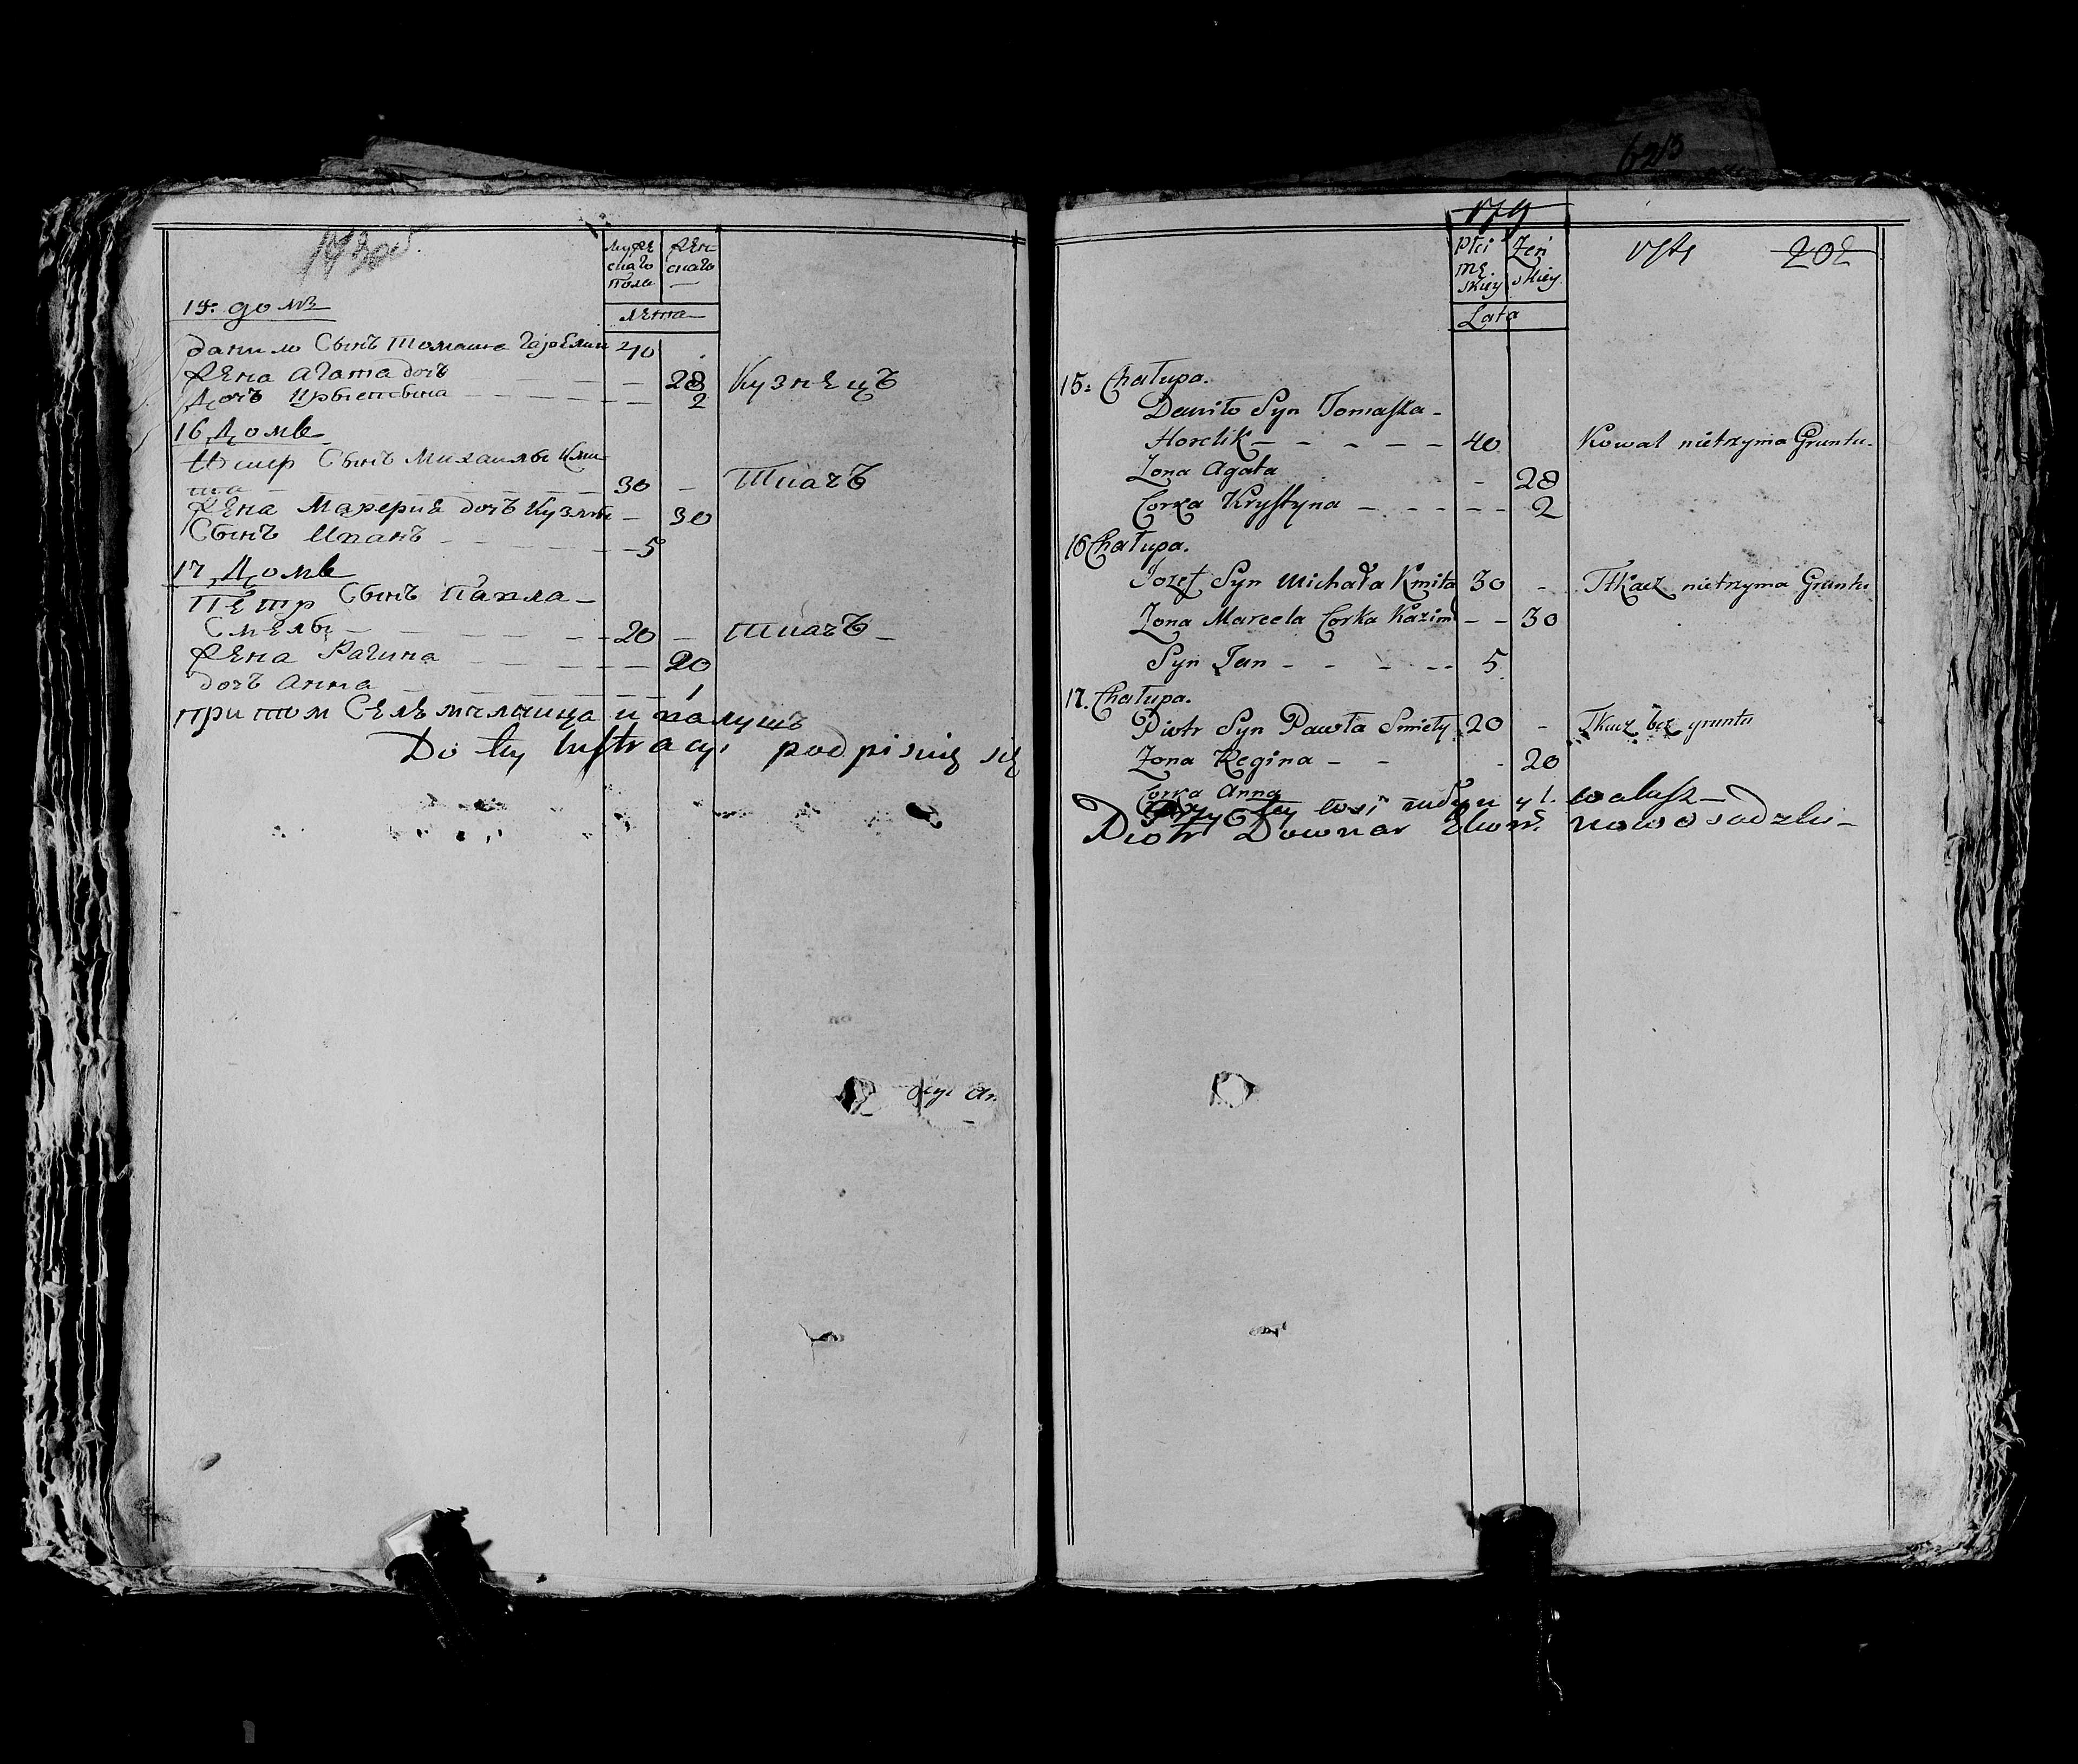 муже
скаго
пола
жен
скаго
лета
15. домъ
данило Сынъ Томаша 40
жена Агата дочъ — — — 28 Кузнецъ
дочъ — — — 2
16 Домъ
Сынъ Михаила Кми
та — — — 30 — Ткачъ
жена дочъ — 30
Сынъ Иванъ — — — 5
17 Домъ
Петр Сынъ Павла —
— — — 20 — Ткачъ —
жена Рагина — — — 20
дочъ Анна — — — 1
при том Селе мелница и валушъ
Do tey lustracyi podpisuię się
179
Płci
mę.
skiey
Żeń
skiey
Lata
202
15. Chałupa.
Daniło Syn Tomaszka -
Horelik — — — — — 40 Kowal nietrzyma Gruntu.
Zona Agata - 28
Corka Krystyna — — — — — 2
16 Chałupa.
Jozef Syn Michała Kmita 30 - Tkacz nietrzyma Gruntu
Zona Marcela Corka Kazim — — 30
Syn Jan — — — — 5
17. Chałupa.
Piotr Syn Pawła Smiety 20 - Tkacz bez gruntu
Zona Regina — — - 20
Corka Anna 1.
Przy tey wsi młyn y walusz —
Piotr Downar Ekon. nowosadzki —
623